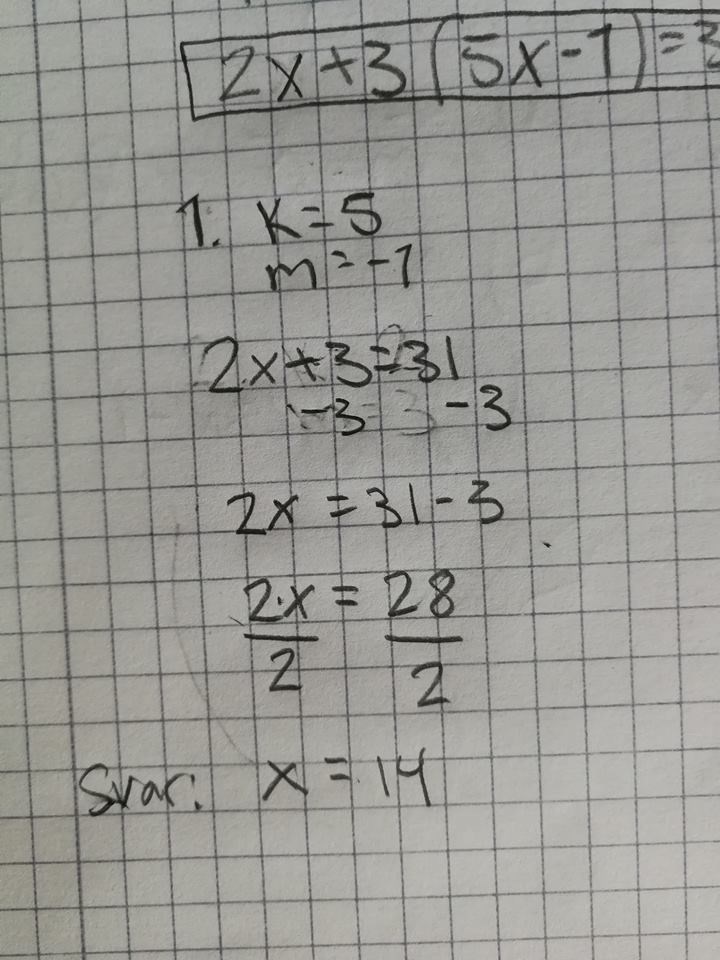 2x+3(5x-1)=3
1. K=5
m=-1
2x+3=31
-3 -3
2x=31-3
2·x=28
2 2
Svar: x=14